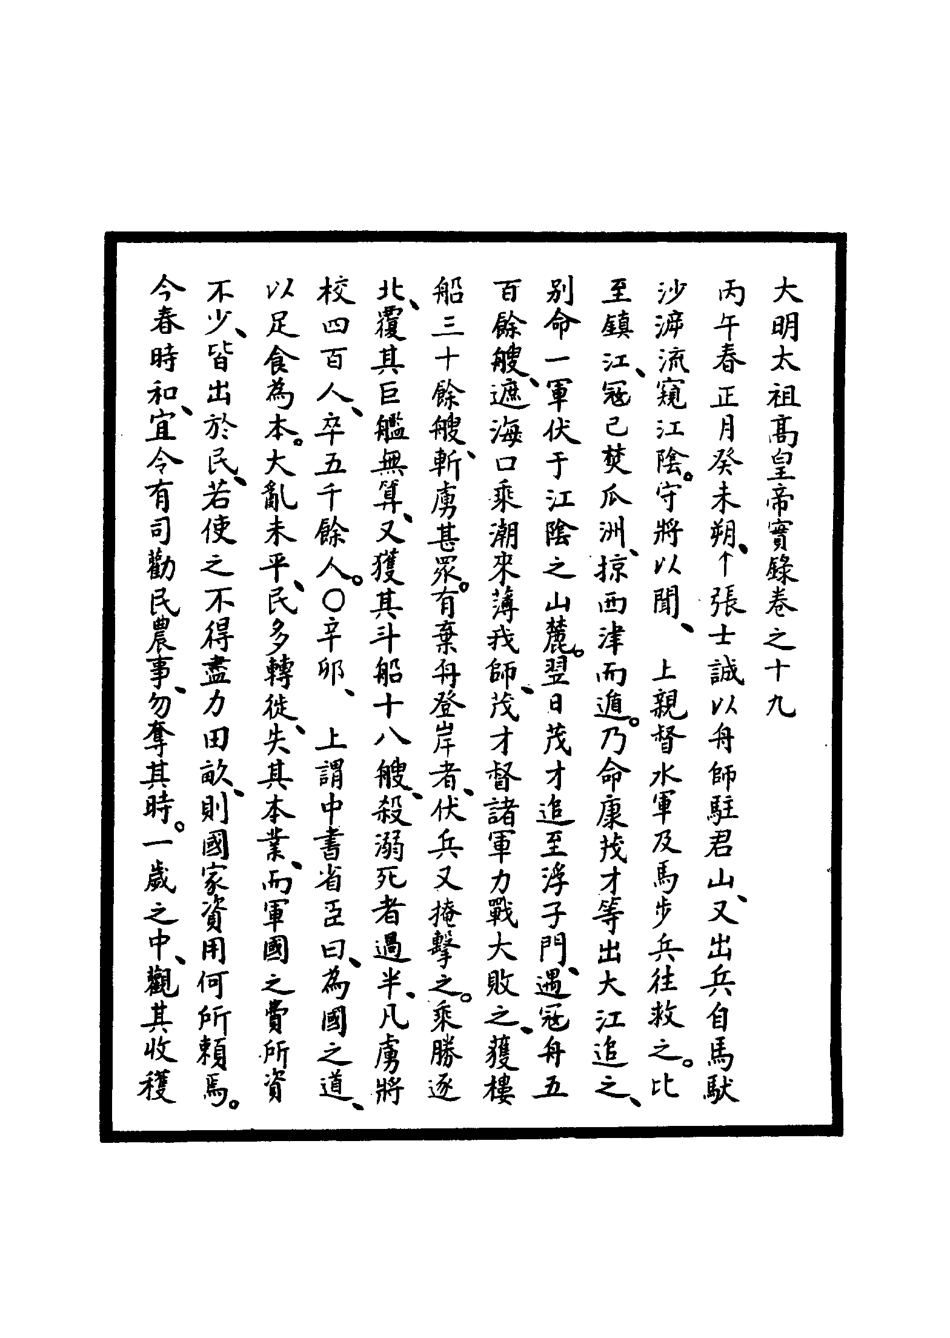 大明太祖高皇帝實錄卷之十九
丙午春正月癸未朔、↑張士誠以舟師駐君山、又出兵自馬馱
沙泝流窺江陰。守將以聞、　上親督水軍及馬步兵往救之。比
至鎮江、寇已焚瓜洲、掠西津而遁。乃命康茂才等出大江追之、
別命一軍伏于江陰之山麓。翌日茂才追至浮子門、遇寇舟五
百餘艘、遮海口乘潮來薄我師、茂才督諸軍力戰大敗之、獲樓
船三十餘艘、斬虜甚眾。有棄舟登岸者、伏兵又掩擊之。乘勝逐
北、覆其巨艦無算、又獲其斗船十八艘、殺溺死者過半、凡虜將
校四百人、卒五千餘人。○辛卯、　上謂中書省臣曰、為國之道、
以足食為本。大亂未平、民多轉徙、失其本業、而軍國之費所資
不少、皆出於民、若使之不得盡力田畝、則國家資用何所賴焉。
今春時和、宜令有司勸民農事、勿奪其時。一歲之中、觀其收穫